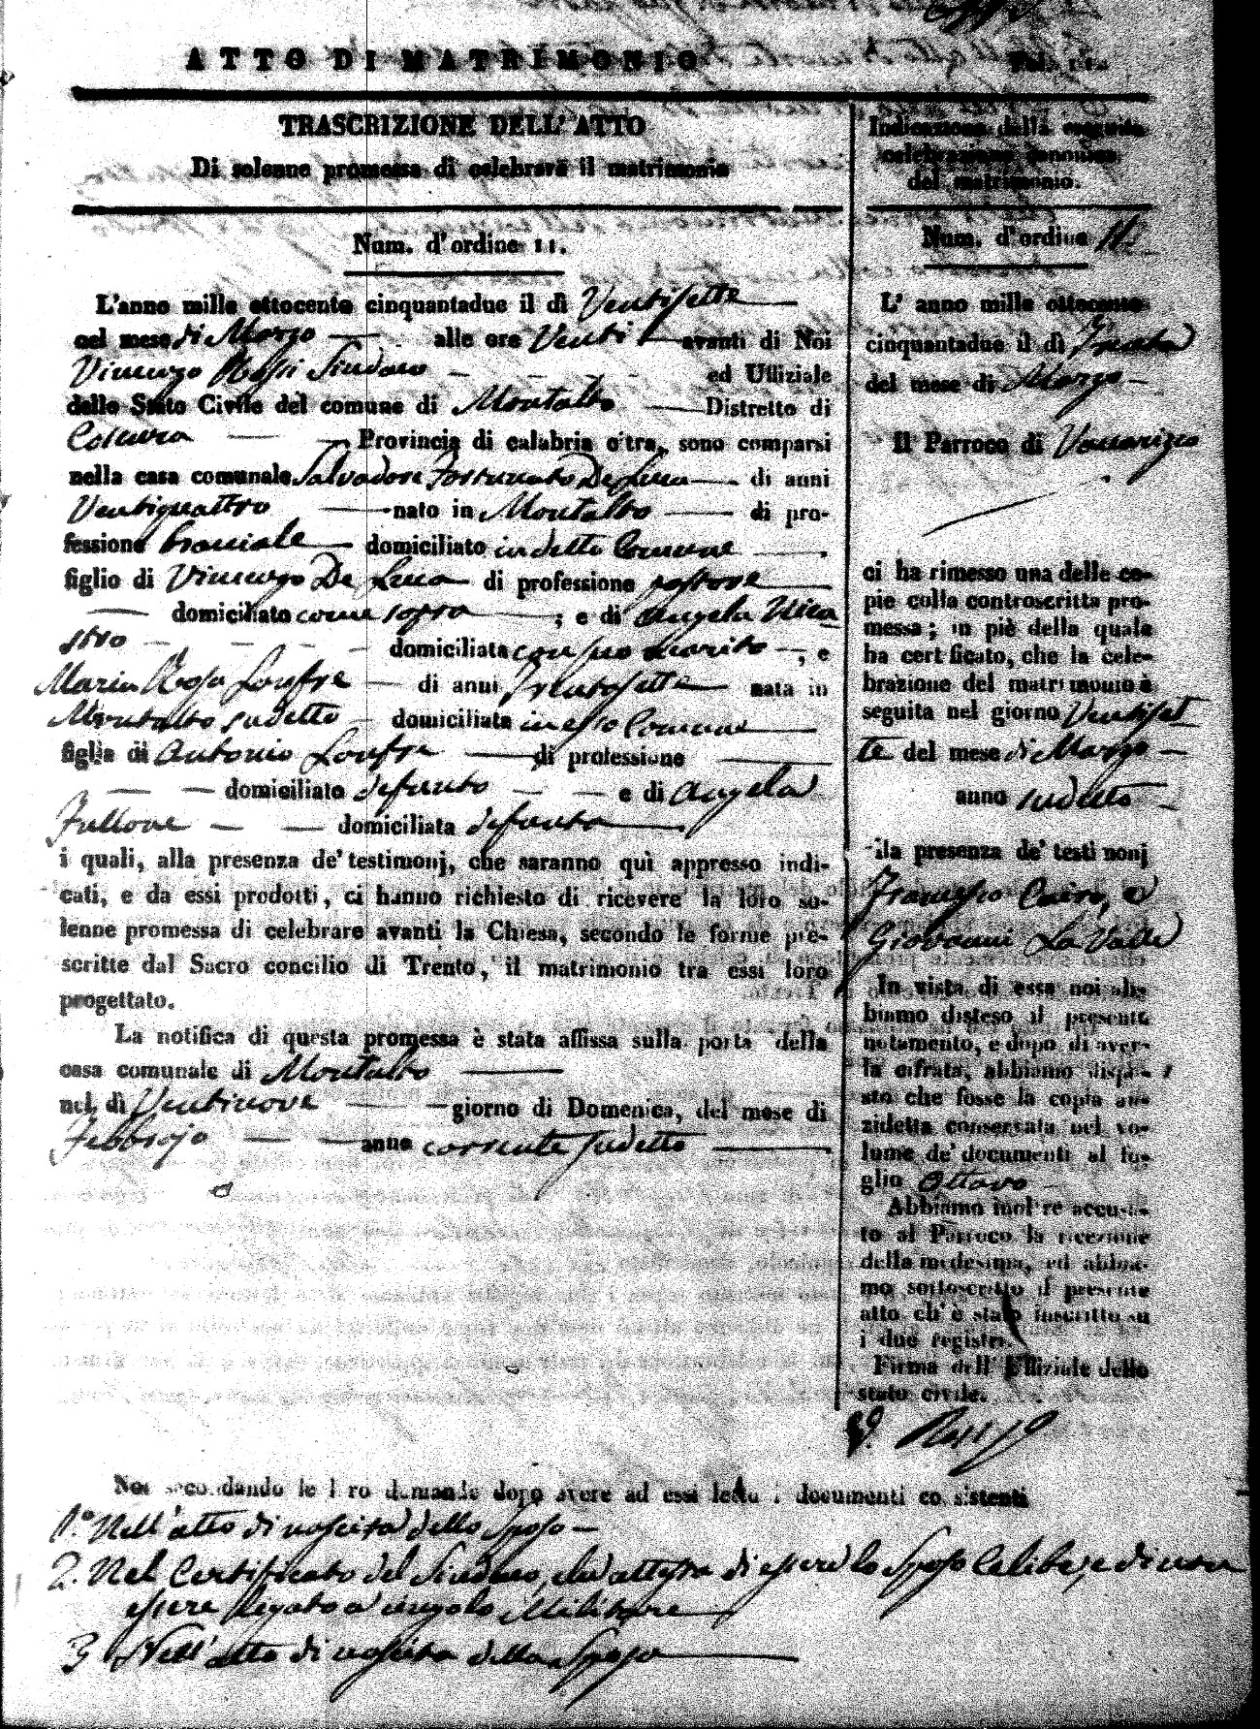 ATTO DI MATRIMONIO
TRASCRIZIONE DELL' ATTO
Di solenne promessa di celebrare il matrimonio
Num. d'ordine 11.
L'anno mille ottocento cinquantadue il dì Ventisette
nel mese di Marzo alle ore Venti avanti di Noi
Vincenzo Rossi Sindaco ed Uffiziale
dello Stato Civile del comune di Montalto Distretto di
Cosenza Provincia di calabria citra, sono comparsi
nella casa comunale Salvadore Fortunato De Luca di anni
Ventiquattro nato in Montalto di pro-
fessione braciale domiciliato in detto Comune
figlio di Vincenzo De Luca di professione pastore
domiciliato come sopra ; e di Angela Nica
stro domiciliata con suo marito ; e
Maria Rosa di anni Trentasette nata in
Montalto sudetto domiciliata in esso Comune
figlia di Antonio di professione
domiciliato defunto e di Angela
Fullone domiciliata defunta
i quali, alla presenza de' testimonj, che saranno quì appresso indi-
cati, e da essi prodotti, ci hanno richiesto di ricevere la loro so-
lenne promessa di celebrare avanti la Chiesa, secondo le forme pre-
scritte dal Sacro concilio di Trento, il matrimonio tra essi loro
progettato.
La notifica di questa promessa è stata affissa sulla porta della
casa comunale di Montalto
nel dì Ventinove giorno di Domenica, del mese di
Febbrajo anno corrente sudetto
Indicazione della seguita
celebrazione canonica
del matrimonio.
Num. d'ordine 11.
L' anno mille ottocento
cinquantadue il dì Trenta
del mese di Marzo
Il Parroco di Vaccarizzo
ci ha rimesso una delle co-
pie colla controscritta pro-
messa; in piè della quale
ha certificato, che la cele-
brazione del matrimonio è
seguita nel giorno Ventiset
te del mese di Marzo
anno sudetto
alla presenza de' testimonj
Francesco Cairo, e
Giovanni La Valle
In vista di essa noi ab-
biamo disteso il presente
notamento, e dopo di aver-
la cifrata, abbiamo dispo-
sto che fosse la copia an-
zidetta conservata nel vo-
lume de' documenti al fo-
glio Ottavo
Abbiamo inoltre accusa-
to al Parroco la ricezione
della medesima, ed abbia-
mo sottoscritto il presente
atto ch' è stato inscritto su
i due registri.
Firma dell' Uffiziale dello
stato civile.
Noi secondando le loro domande dopo avere ad essi letto i documenti consistenti
1.° Nell' atto di nascita dello Sposo
2. Nel Certificato del Sindaco, che attesta di essere lo Sposo Celibe, e di non
essere legato a vincolo Militare
3 Nell' atto di nascita della Sposa